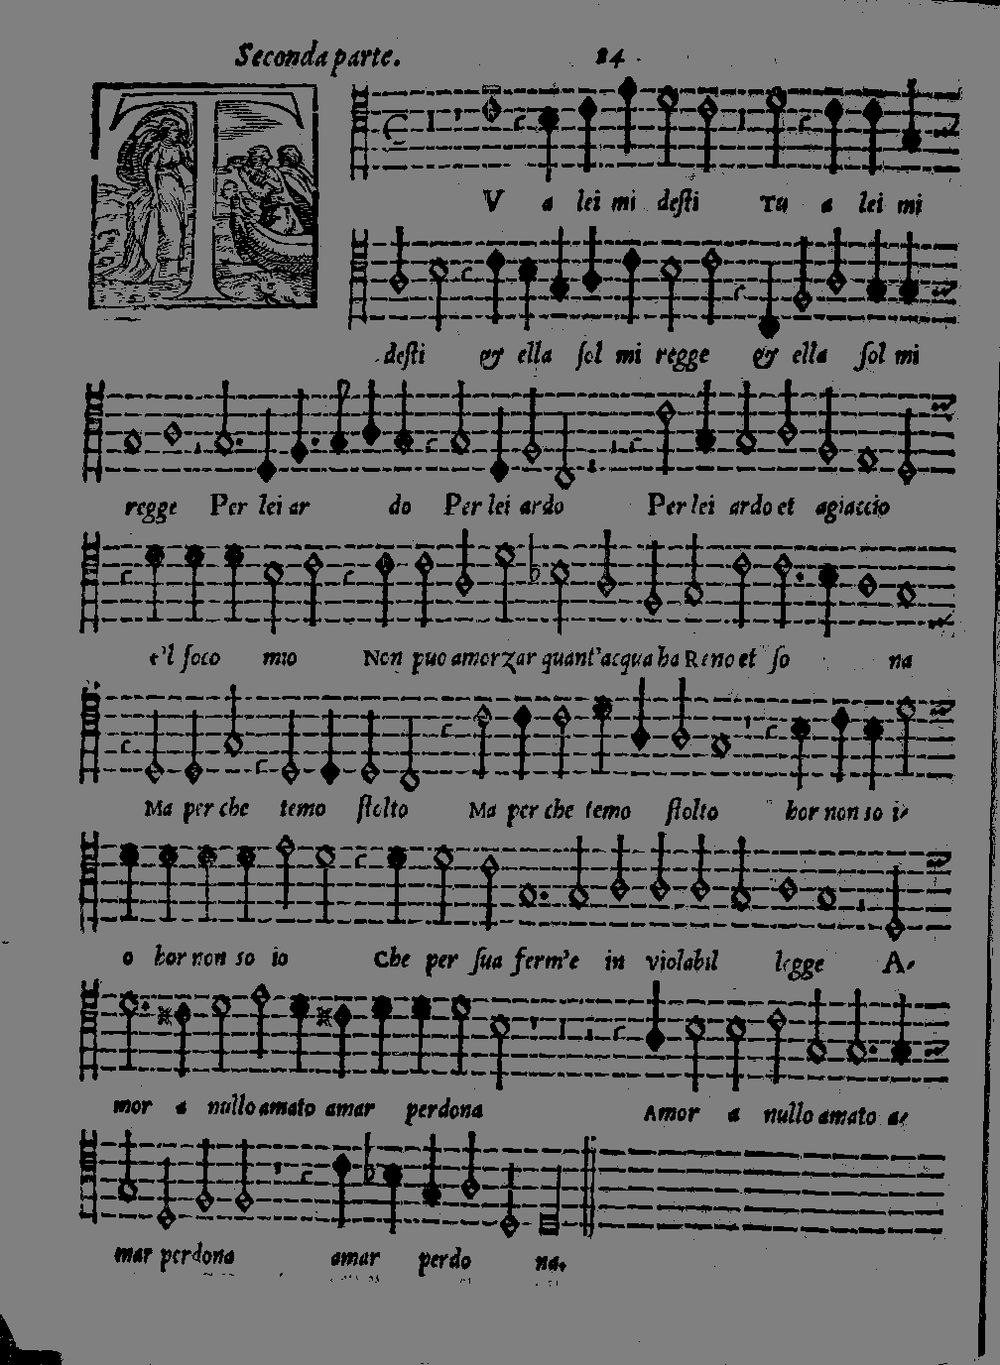 Seconda parte. 24
TV a lei mi desti Tu a lei mi
desti & ella sol mi regge & ella sol mi
regge Per lei ar do Per lei ardo Per lei ardo et agiaccio
e'l foco mio Non puo amorzar quant'acqua ha Reno et so na
Ma per che temo stolto Ma per che temo stolto hor non so i-
o hor non so io Che per sua ferm'e in violabil legge A-
mor a nullo amato amar perdona Amor a nullo amato a-
mar perdona amar perdo na.